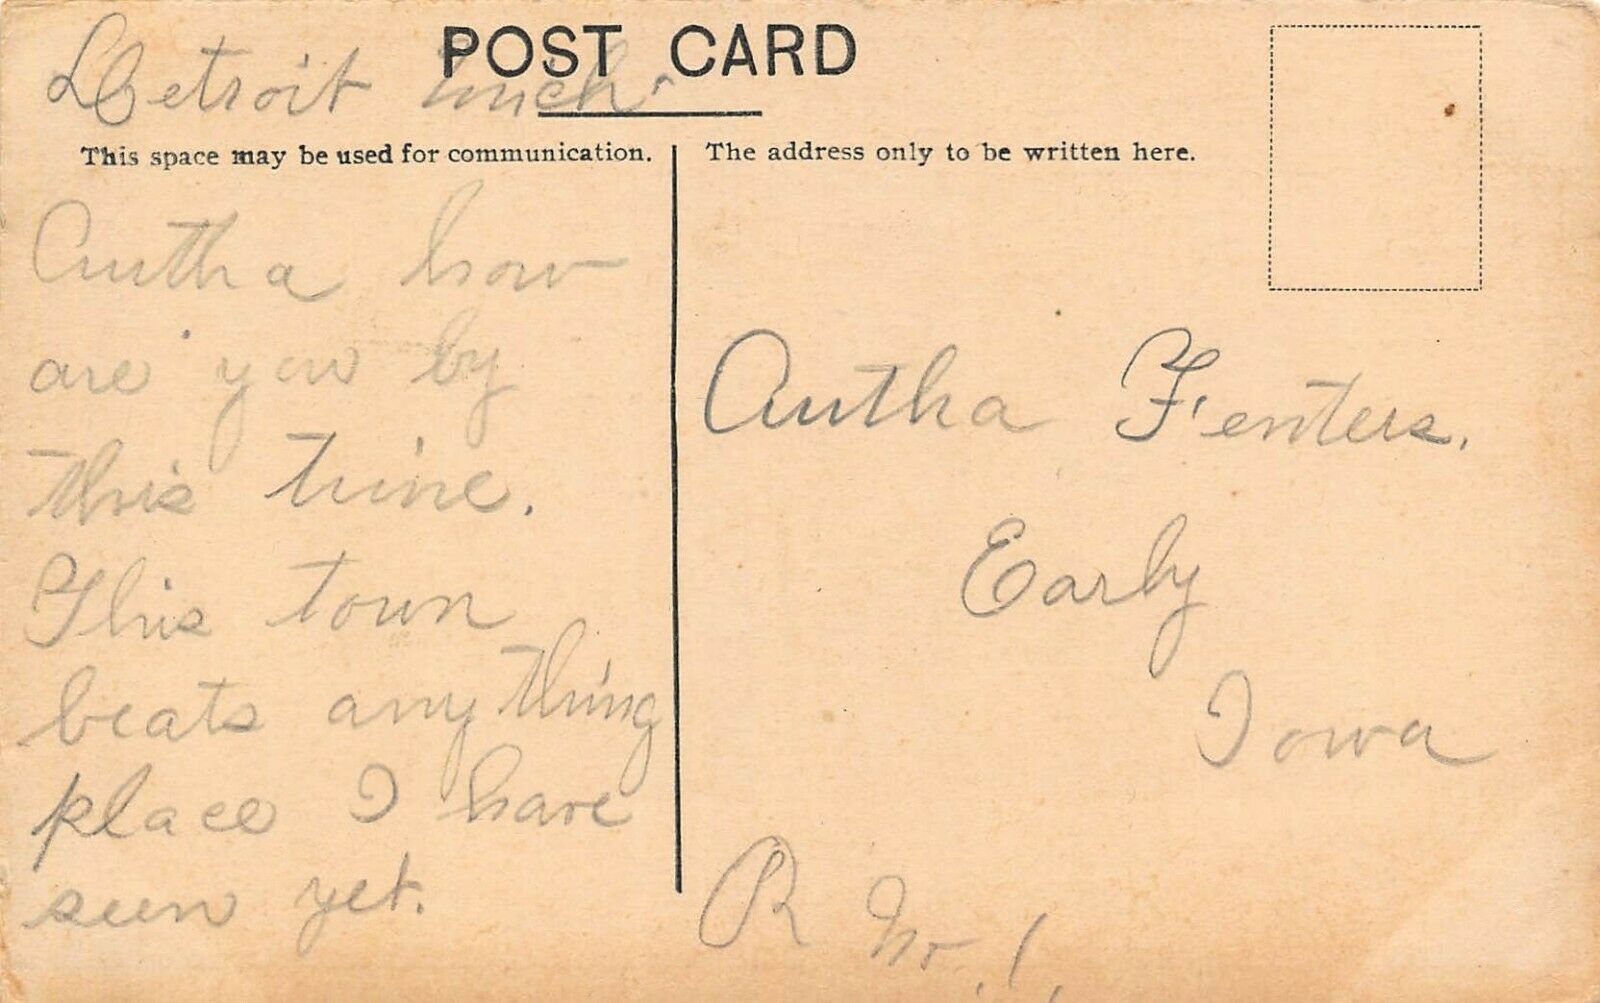 POST CARD
Detroit Mich.
This space may be used for communication.
The address only to be written here.
Autha how
are you by
this time.
This town
beats any thing
place I have
seen yet.
Autha Fenters.
Early
Iowa
R Nr. 1.